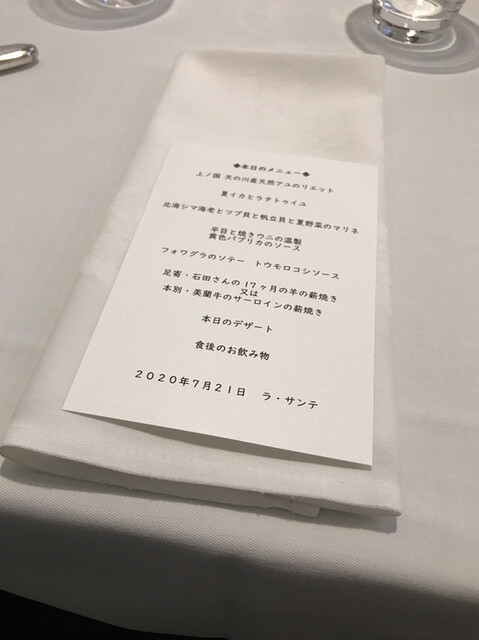 ◆本日のメニュー◆
上ノ国 天の川産天然アユのリエット
夏イカとラタトゥイユ
北海シマ海老とツブ貝と帆立貝と夏野菜のマリネ
平目と焼きウニの温製
黄色パプリカのソース
フォワグラのソテー　トウモロコシソース
足寄・石田さんの17ヶ月の羊の薪焼き
又は
本別・美蘭牛のサーロインの薪焼き
本日のデザート
食後のお飲み物
２０２０年７月２１日　ラ・サンテ